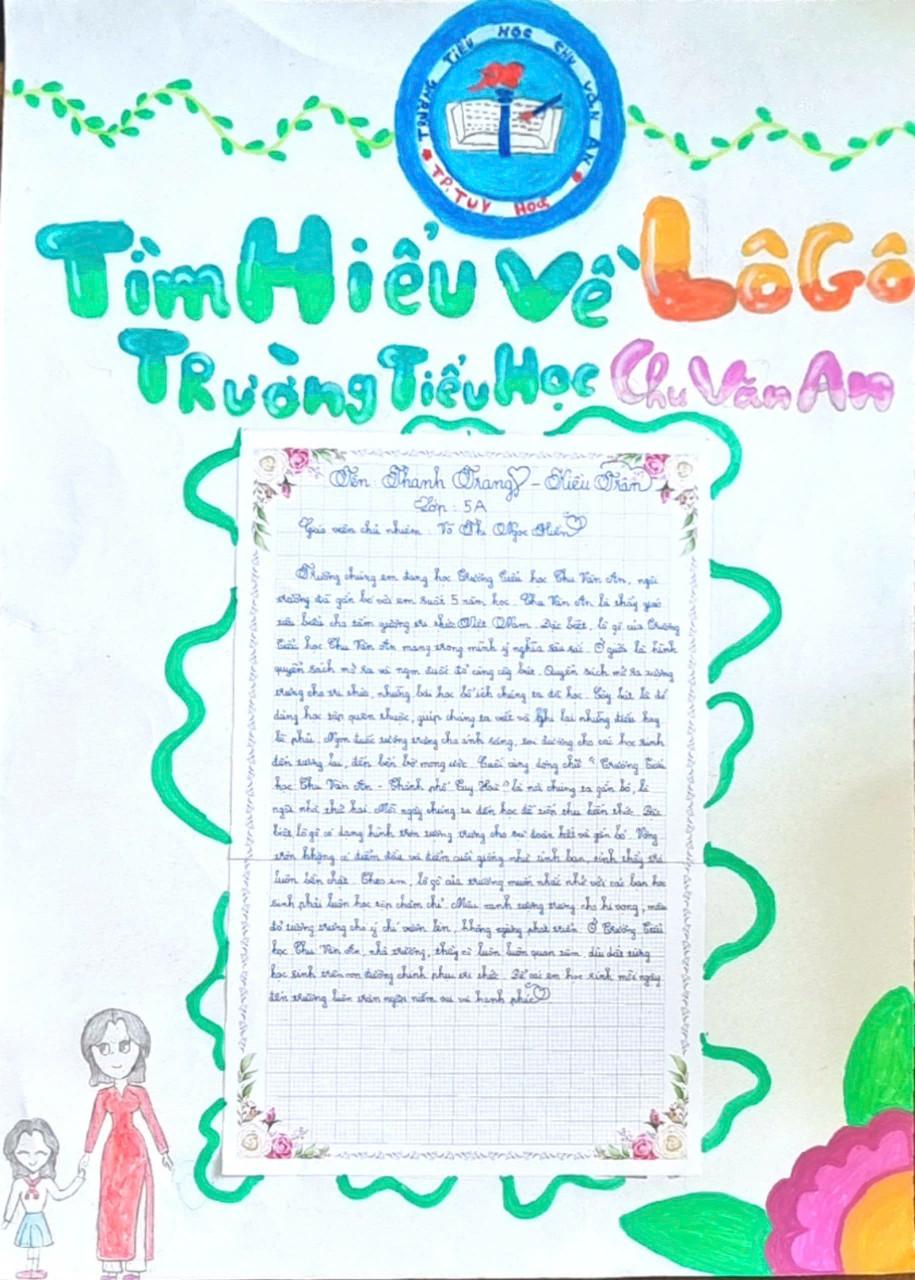 TRƯỜNG TIỂU HỌC CHU VĂN AN
TP. TUY HOÀ
Tìm Hiểu về LôGô
Trường Tiểu Học Chu Văn An
Tên Thanh Trang - Kiều Trân
Lớp : 5A
Giáo viên chủ nhiệm : Võ Thị Ngọc Hiền
Trường chúng em đang học Trường Tiểu học Chu Văn An, ngôi
trường đã gắn bó với em suốt 5 năm học. Chu Văn An là thầy giáo
tiêu biểu cho tấm gương tri thức Việt Nam. Đặc biệt, lô gô của trường
tiểu học Chu Văn An mang trong mình ý nghĩa sâu sắc. Ở giữa là hình
quyển sách mở ra và ngọn đuốc đỏ cùng cây bút. Quyển sách mở ra tượng
trưng cho tri thức, những bài học bổ ích chúng ta đã học. Cây bút là đồ
dùng học tập quen thuộc, giúp chúng ta viết và ghi lại những điều hay
lẽ phải. Ngọn đuốc tượng trưng cho ánh sáng, soi đường cho các học sinh
đến tương lai, đến bến bờ mong ước. Cuối cùng dòng chữ " Trường Tiểu
học Chu Văn An - Thành phố Tuy Hoà " là nơi chúng ta gắn bó, là
ngôi nhà thứ hai. Mỗi ngày chúng ta đến học để tiếp thu kiến thức. Đặc
biệt lô gô có dạng hình tròn tượng trưng cho sự đoàn kết và gắn bó. Vòng
tròn không có điểm đầu và điểm cuối giống như tình bạn, tình thầy trò
luôn bền chặt. Theo em, lô gô của trường muốn nhắc nhở với các bạn học
sinh phải luôn học tập chăm chỉ. Màu xanh tượng trưng cho hi vọng, màu
đỏ tượng trưng cho ý chí vươn lên, không ngừng phát triển. Ở Trường Tiểu
học Chu Văn An, nhà trường, thầy cô luôn luôn quan tâm, dìu dắt từng
học sinh trên con đường chinh phục tri thức. Để các em học sinh mỗi ngày
đến trường luôn tràn ngập niềm vui và hạnh phúc